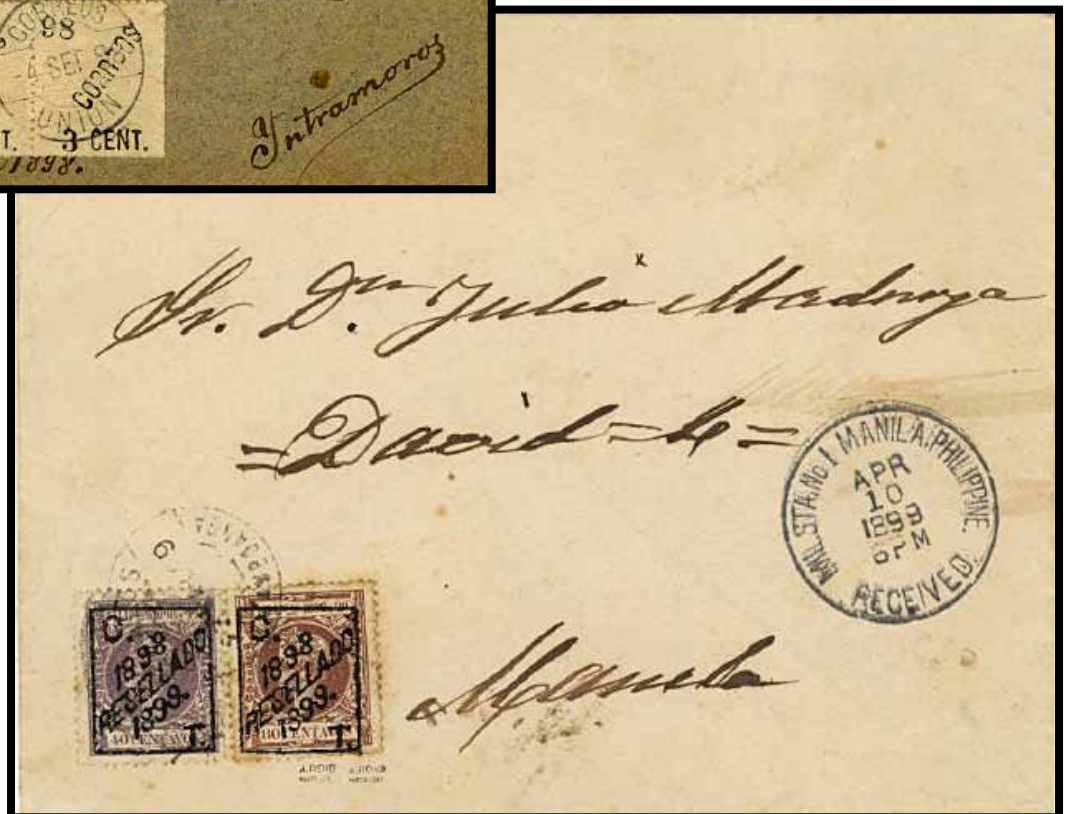 CORREOS
98
4 SET 9
CORREOS
UNION
T. 3 CENT.
1898.
Intramoros
Sr. Dn Julio Madruga
=David=4=
Manila
MIL. STA. No 1 MANILA, PHILIPPINE.
APR
10
1899
6 PM
RECEIVED.
6
C.
1898
RESELLADO
1899.
T.
40 CENTAVO
C.
1898
RESELLADO
1899.
T.
80 CENTAV